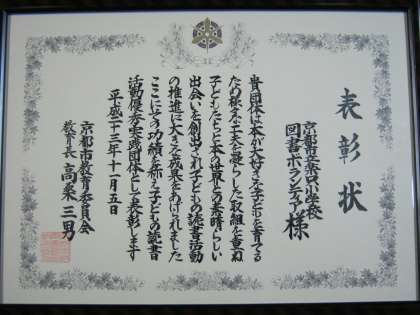 表彰状
京都市立葵小学校
図書ボランティア様
貴団体は本が大好きな子どもを育てる
ため様々な工夫を凝らした取組を重ね
子どもたちと本の世界との素晴らしい
出会いを創出され子どもの読書活動
の推進に大きな成果をあげられました
ここにその功績を称え子どもの読書
活動優秀実践団体として表彰します
平成二十三年十一月五日
京都市教育委員会
教育長 高桑三男